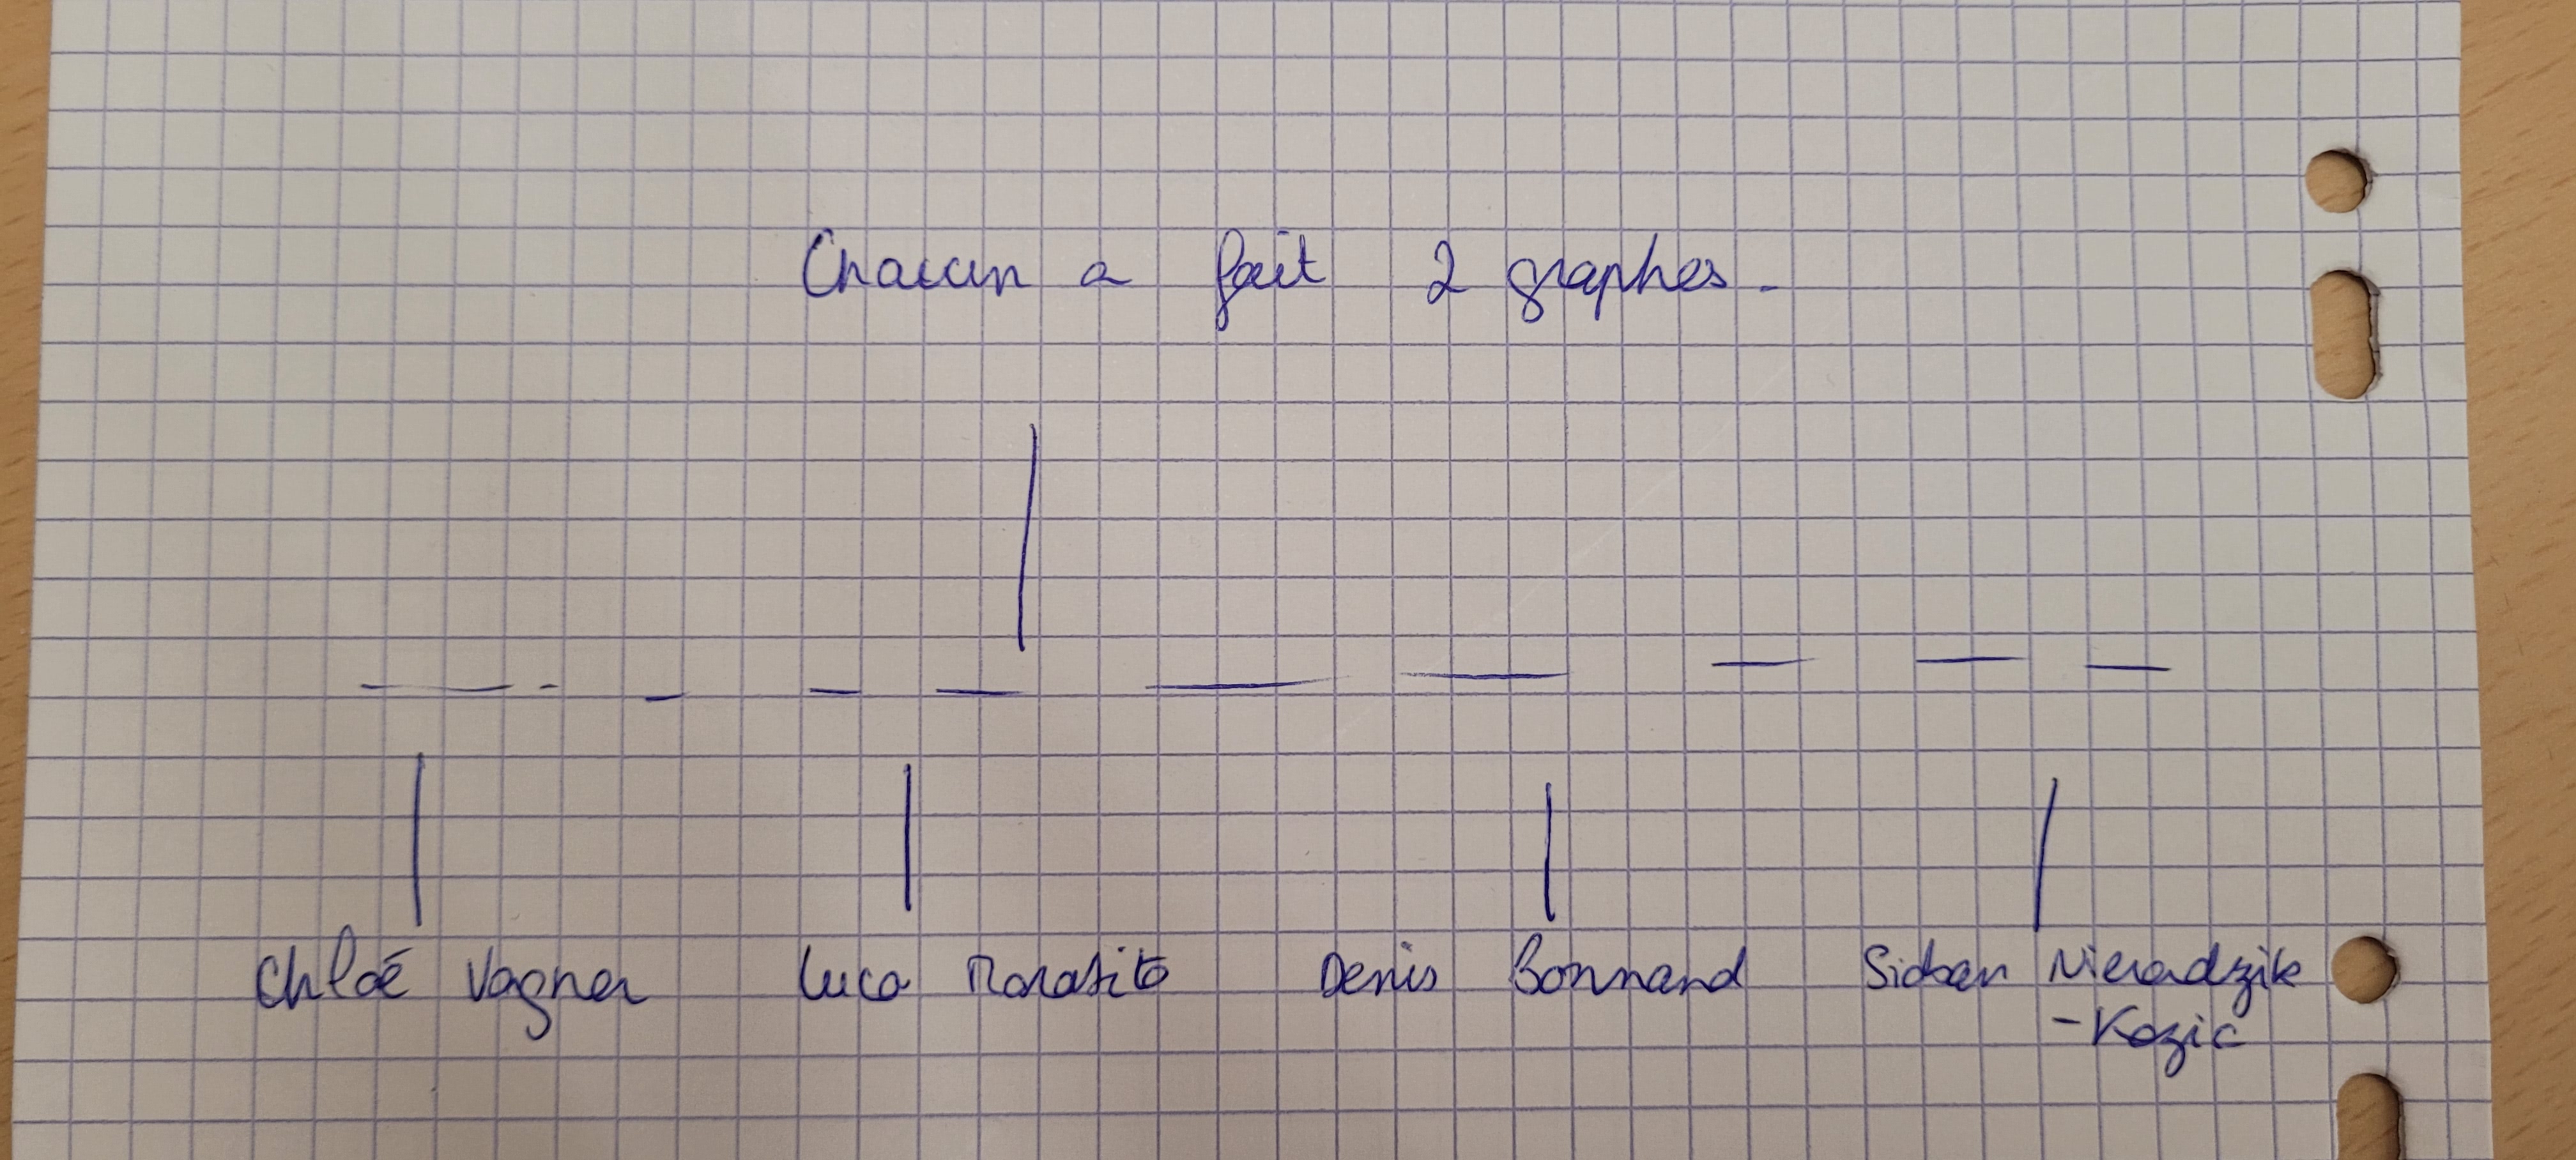 Chacun a fait 2 graphes.
Chloé Vagner Luca Morabito Denis Bonnand Sidoan Nierendzik
-Kozic